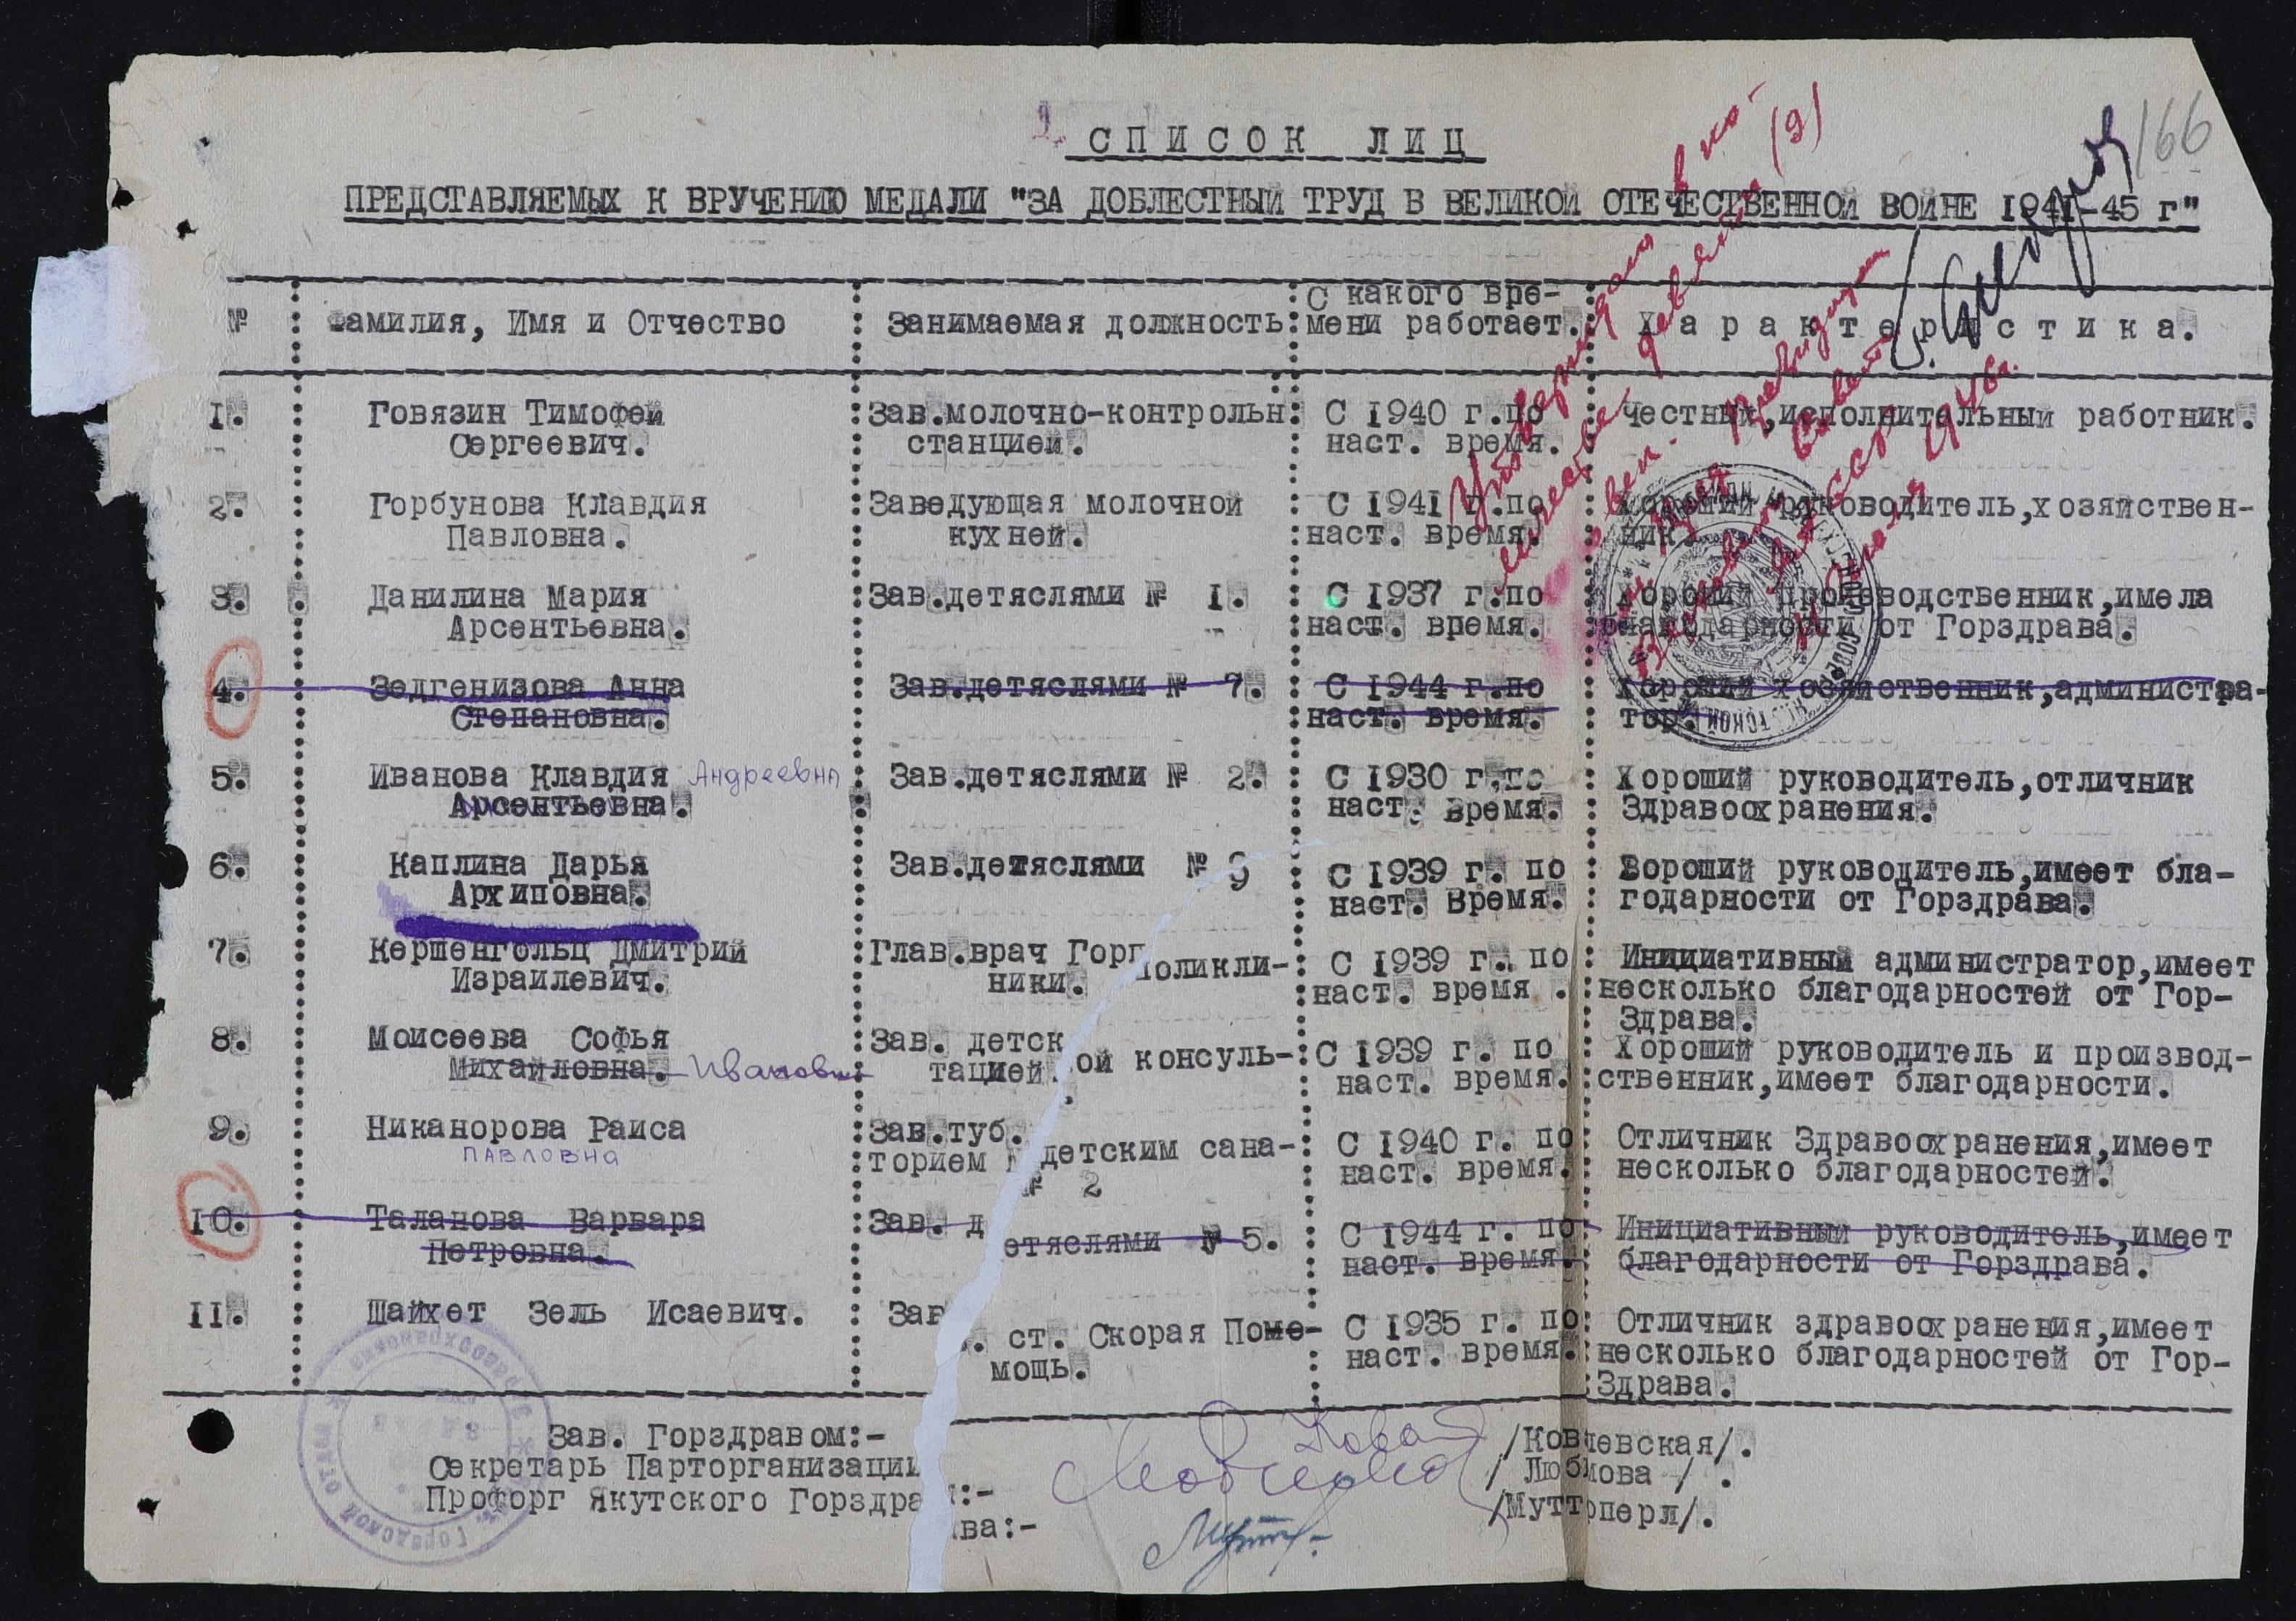 166
СПИСОК ЛИЦ
ПРЕДСТАВЛЯЕМЫХ К ВРУЧЕНИЮ МЕДАЛИ "ЗА ДОБЛЕСТНЫЙ ТРУД В ВЕЛИКОЙ ОТЕЧЕСТВЕННОЙ ВОЙНЕ 1941-45 г"
№ Фамилия, Имя и Отчество Занимаемая должность С какого вре- Характеристика.
мени работает.
1. Говязин Тимофей Зав.молочно-контрольн С 1940 г.по Честный,исполнительный работник.
Сергеевич. станцией. наст. время.
2. Горбунова Клавдия Заведующая молочной С 1941 г.по Хороший руководитель,хозяйствен-
Павловна. кухней. наст. время. ник.
3. Данилина Мария Зав.детяслями № 1. С 1937 г.по Хороший производственник,имела
Арсентьевна. наст. время. благодарности от Горздрава.
4. Зедгенизова Анна Зав.детяслями № 7. С 1944 г.по Хороший хозяйственник,администра-
Степановна. наст. время. тор.
5. Иванова Клавдия Андреевна Зав.детяслями № 2. С 1930 г.по Хороший руководитель,отличник
Арсентьевна. наст. время. Здравоохранения.
6. Каплина Дарья Зав.детяслями № 9 С 1939 г. по Хороший руководитель,имеет бла-
Архиповна. наст. Время. годарности от Горздрава.
7. Кершенгольц Дмитрий Глав.врач Горполикли- С 1939 г. по Инициативный администратор,имеет
Израилевич. ники. наст. время . несколько благодарностей от Гор-
Здрава.
8. Моисеева Софья Зав. детской консуль- С 1939 г. по Хороший руководитель и производ-
Михайловна. Ивановна тацией. наст. время. ственник,имеет благодарности.
9. Никанорова Раиса Зав.туб. детским сана- С 1940 г. по Отличник Здравоохранения,имеет
Павловна торием № 2 наст. время. несколько благодарностей.
10. Таланова Варвара Зав. детяслями № 5. С 1944 г. по Инициативный руководитель,имеет
Петровна. наст. время. благодарности от Горздрава.
11. Шайхет Зель Исаевич. Зав. ст. Скорая Поме- С 1935 г. по Отличник здравоохранения,имеет
мощь. наст. время. несколько благодарностей от Гор-
Здрава.
Утверждаем в ко-
личестве девяти (9)
человек.
Президиум
Верховного Совета
1946г.
Зав. Горздравом:- /Ковлевская/.
Секретарь Парторганизации:- / Любимова / .
Профорг Якутского Горздрава:- /Муттерперл/.